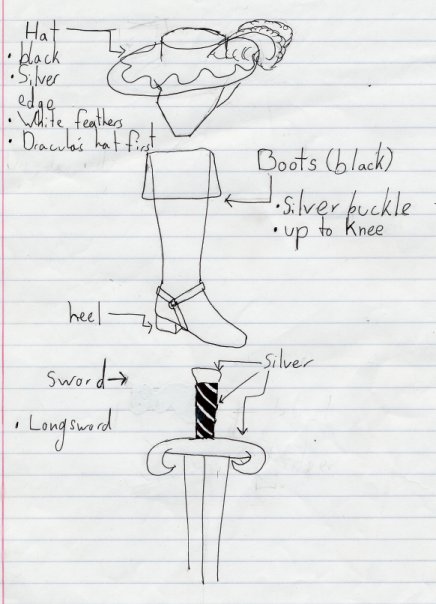 Hat
• black
• Silver
edge
• White feathers
• Dracula's hat first
Boots (black)
• Silver buckle
• up to knee
heel
silver
Sword
• Longsword